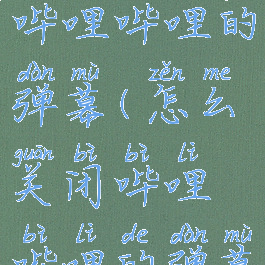 哔哩哔哩的
dàn mù zěn me
弹幕(怎么
guān bì bì lī
关闭哔哩
bì lī de dàn mù
哔哩的弹幕